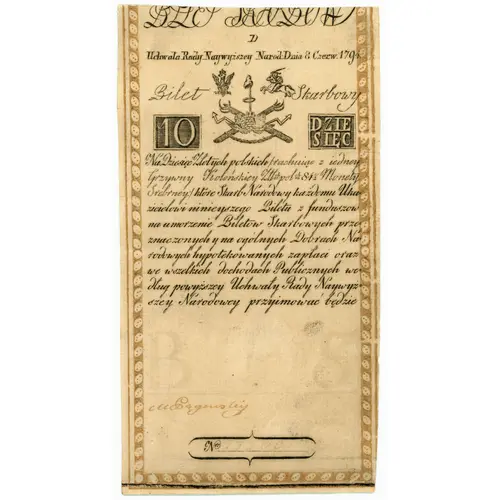 BILET SKARBOWY
D
Uchwała Rady Naywyższey Narod: Dnia 8. Czerw. 1794.
Bilet Skarbowy
10 DZIE
SIĘC
Na Dziesięć Złotych polskich rachuiąc z iedney
Grzywny Kolońskiey Złłtt pol: 84½ Monety
Srebrney, które Skarb Narodowy każdemu Oka
zicielowi ninieyszego Biletu z funduszow
na umorzenie Biletów Skarbowych prze
znaczonych y na ogólnych Dobrach Na
rodowych hypotekowanych zapłaci oraz
we wszelkich dochodach Publicznych we
dług powyższey Uchwały Rady Naywyż
szey Narodowey przyimować będzie
Nro